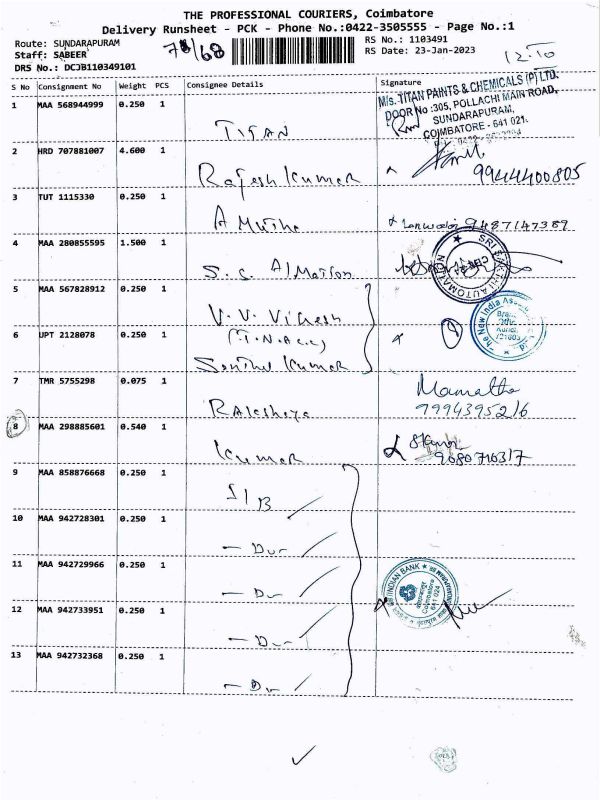 THE PROFESSIONAL COURIERS, Coimbatore
Delivery Runsheet - PCK - Phone No.:0422-3505555 - Page No.:1
Route: SUNDARAPURAM 78/68 RS No.: 1103491
Staff: SABEER RS Date: 23-Jan-2023 12.10
DRS No.: DCJB110349101
S No Consignment No Weight PCS Consignee Details Signature
1 MAA 568944999 0.250 1 TITAN
M/s. TITAN PAINTS & CHEMICALS (P) LTD.
DOOR No :305, POLLACHI MAIN ROAD,
SUNDARAPURAM,
COIMBATORE - 641 021.
2 HRD 707881007 4.600 1 Rajesh Kumar 9944400805
3 TUT 1115330 0.250 1 A Mutha 9487147389
4 MAA 280855595 1.500 1 S. S.
SRI SAKTHI AUTOMATION
CBE-24
5 MAA 567828912 0.250 1 V. V. Vignesh
6 UPT 2128078 0.250 1 (T.N.A.CC)
Senthil Kumar
The New India
7 TMR 5755298 0.075 1 Mamatha
9994395216
8 MAA 298885601 0.540 1 Kumar
9080716317
9 MAA 858876668 0.250 1 SIB
10 MAA 942728301 0.250 1 - Do
11 MAA 942729966 0.250 1 - Do
INDIAN BANK
Coimbatore
641 024
12 MAA 942733951 0.250 1 - Do
13 MAA 942732368 0.250 1 - Do